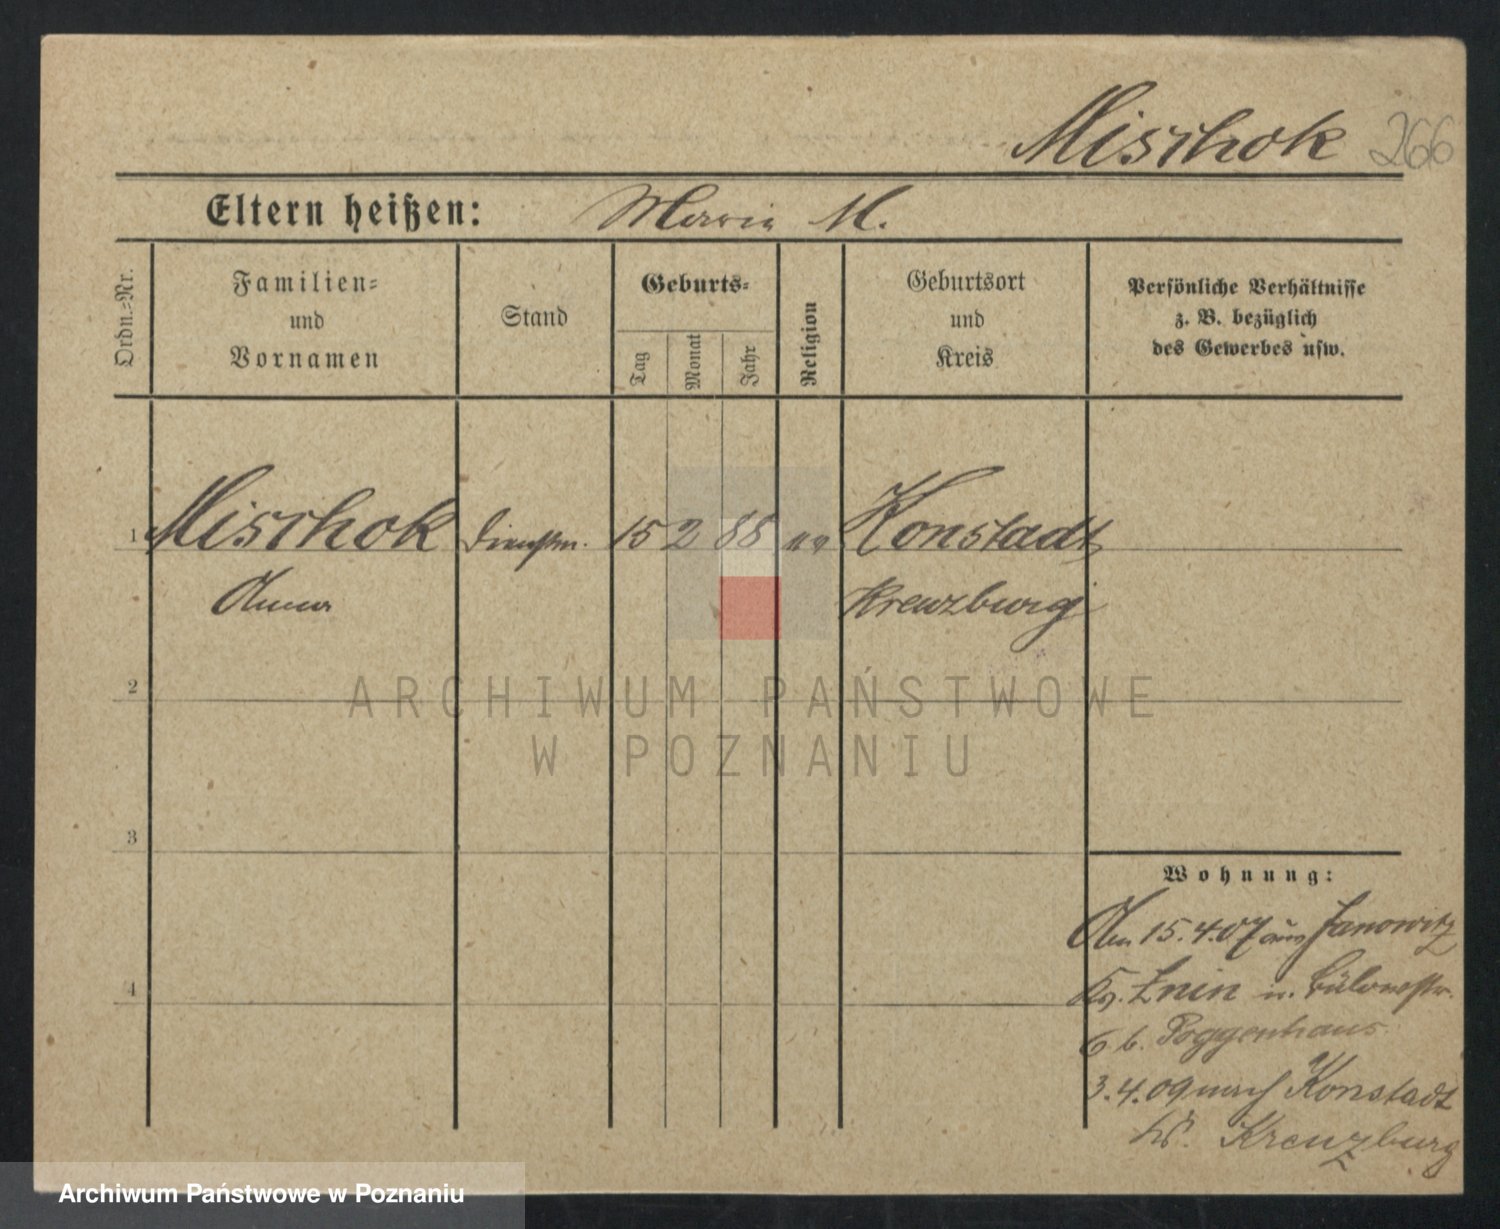 Mischok 266
Eltern heißen: Maria M.
Ordn.=Nr.
Familien=
und
Vornamen
Stand
Geburts=
Tag
Monat
Jahr
Religion
Geburtsort
und
Kreis
Persönliche Verhältnisse
z. B. bezüglich
des Gewerbes usw.
1 Mischok Dienstm. 15 2 88 Konstadt
Anna Kreuzburg
2
ARCHIWUM PAŃSTWOWE
W POZNANIU
3
Wohnung:
Am 15.4.07 aus Janowitz
Kr. Znin n. Bülowstr.
6 b. Poggenhaus
4
3.4.09 nach Konstadt
Kr. Kreuzburg
Archiwum Państwowe w Poznaniu